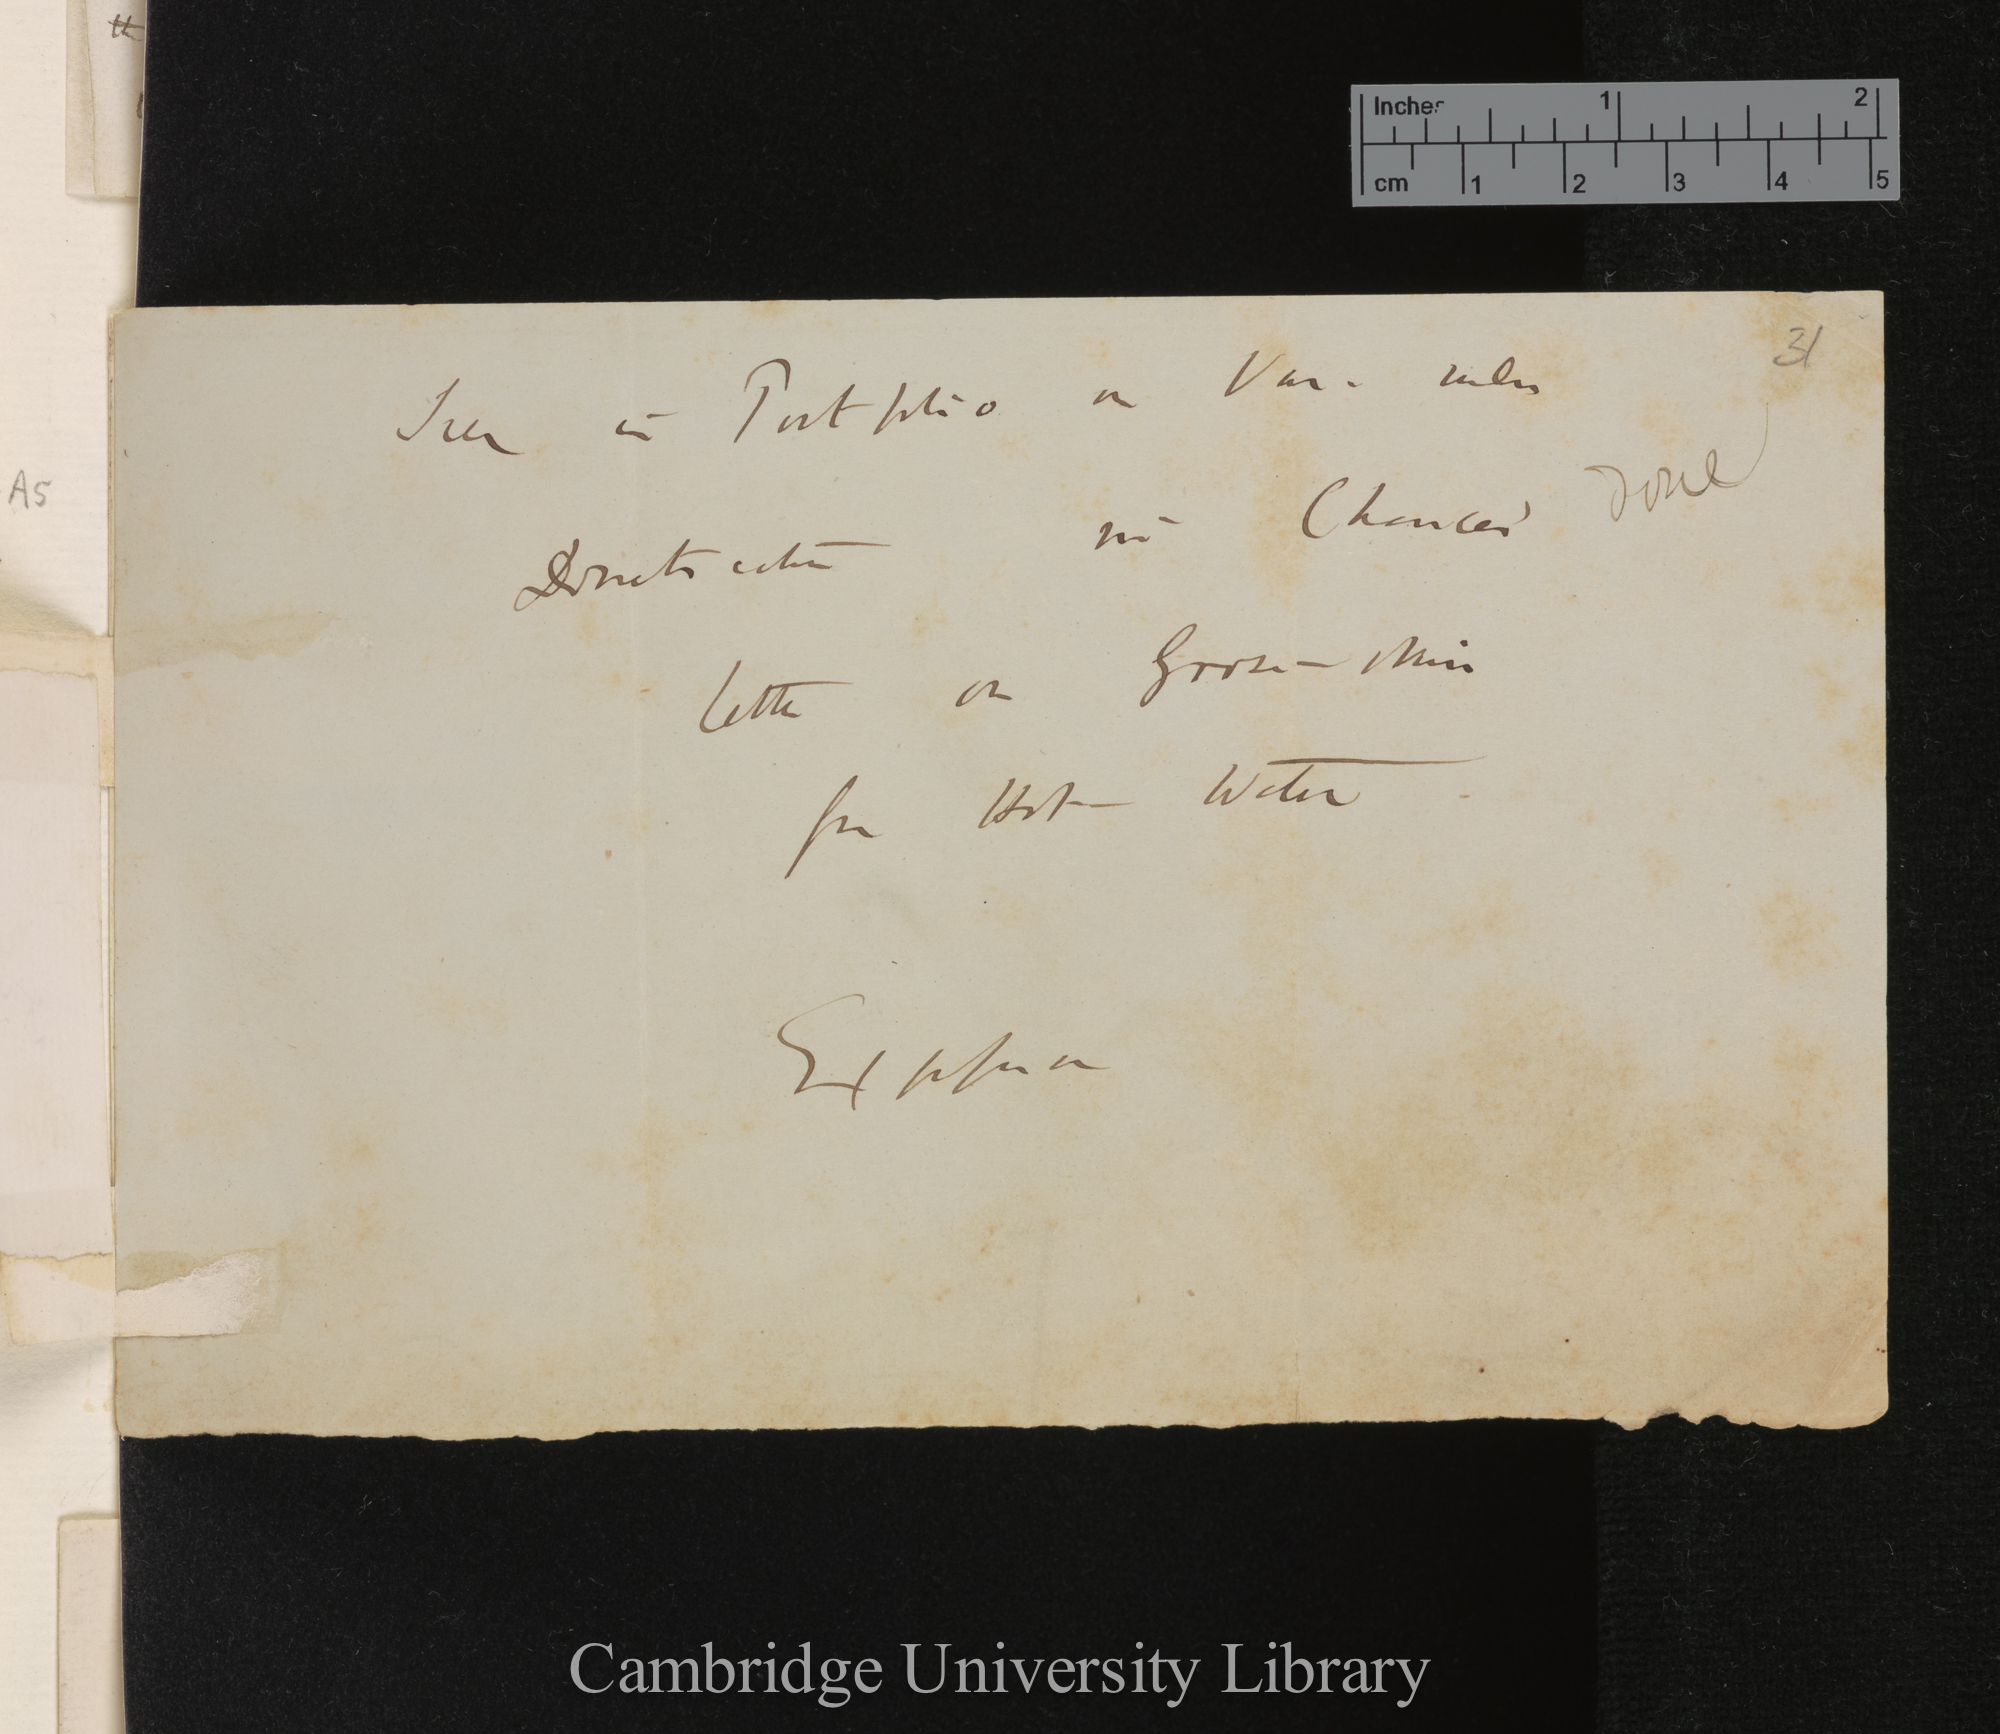 the
A5
Inches 1 2
cm 1 2 3 4 5
31
Seen in Portfolio on Var. under
Domestication in Chances' done
letter on Goose-skin
for Hot Water
Expression
Cambridge University Library